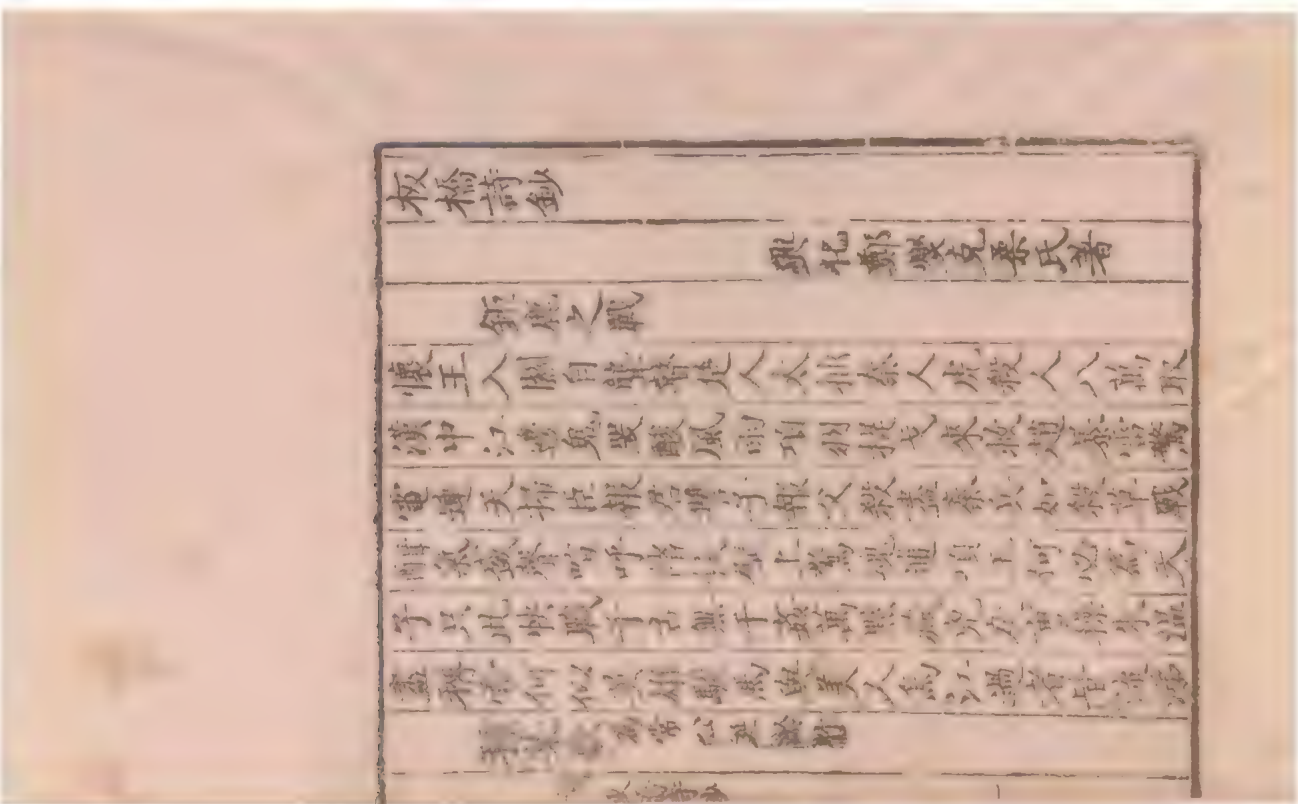 板橋詩鈔
興化鄭燮克柔氏著
鉅鹿之戰
懷王入關自聾瞽楚人太拙秦人虎殺人八萬取
漢中江邊鬼哭酸風雨項羽提戈來救趙暴雷驚
電連天掃臣報君讎子報父殺盡秦兵如殺草戰
酣氣盛聲喧呼諸侯壁上驚魂逋項王何必為天
子只此快戰千古無千姦萬黠藏凶戾曹操朱溫
盡稱帝何似英雄駿馬與美人烏江過者皆流涕
種菜歌為常公延齡作